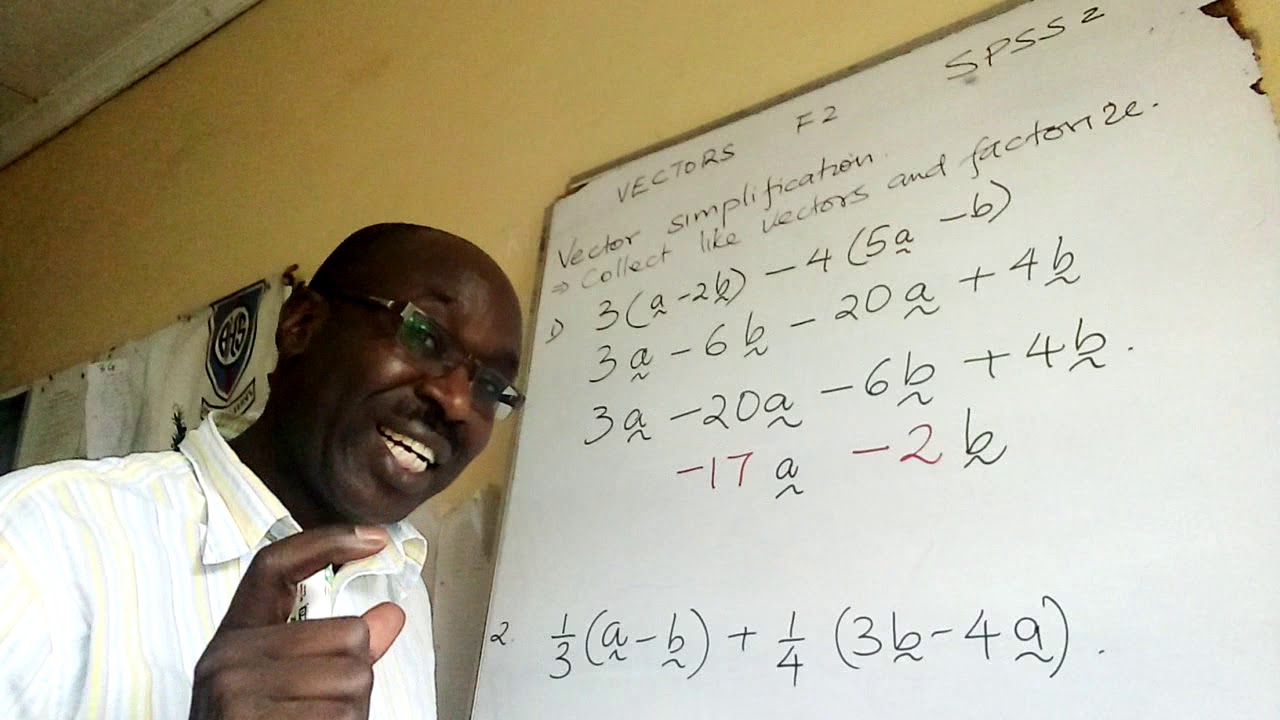 SPSS 2
VECTORS F2
Vector simplification.
⇒ Collect like vectors and factorize.
1) 3(a̰ - 2b̰) - 4(5a̰ - b)
3a̰ - 6b̰ - 20a̰ + 4b̰
3a̰ - 20a̰ - 6b̰ + 4b̰.
-17a̰ - 2b̰
2. 1/3(a̰ - b̰) + 1/4(3b̰ - 4a̰).
GHS